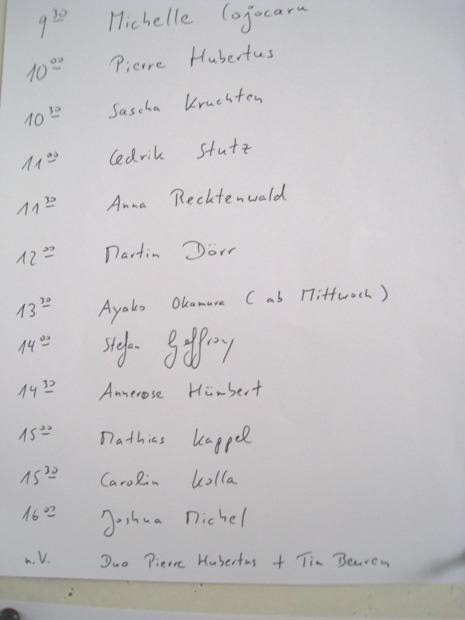 9 30 Michelle Cojocaru
10 00 Pierre Hubertus
10 30 Sascha Kruchten
11 00 Cedrik Stutz
11 30 Anna Recktenwald
12 00 Martin Dörr
13 30 Ayako Okamura (ab Mittwoch)
14 00 Stefan Geffroy
14 30 Annerose Hümbert
15 00 Mathias Kappel
15 30 Carolin Kolla
16 00 Joshua Michel
n.V. Duo Pierre Hubertus + Tim Beuren